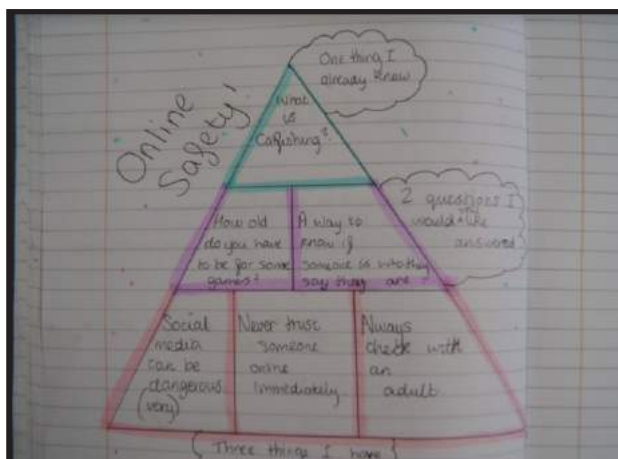 Online
Safety!
One thing I
already knew
What
is
Catfishing?
2 questions I
would like
answered
How old
do you have
to be for some
games?
A way to
know if
someone is who they
say they are?
Social
media
can be
dangerous
(very)
Never trust
someone
online
immediately
Always
check with
an
adult
(Three things I have)